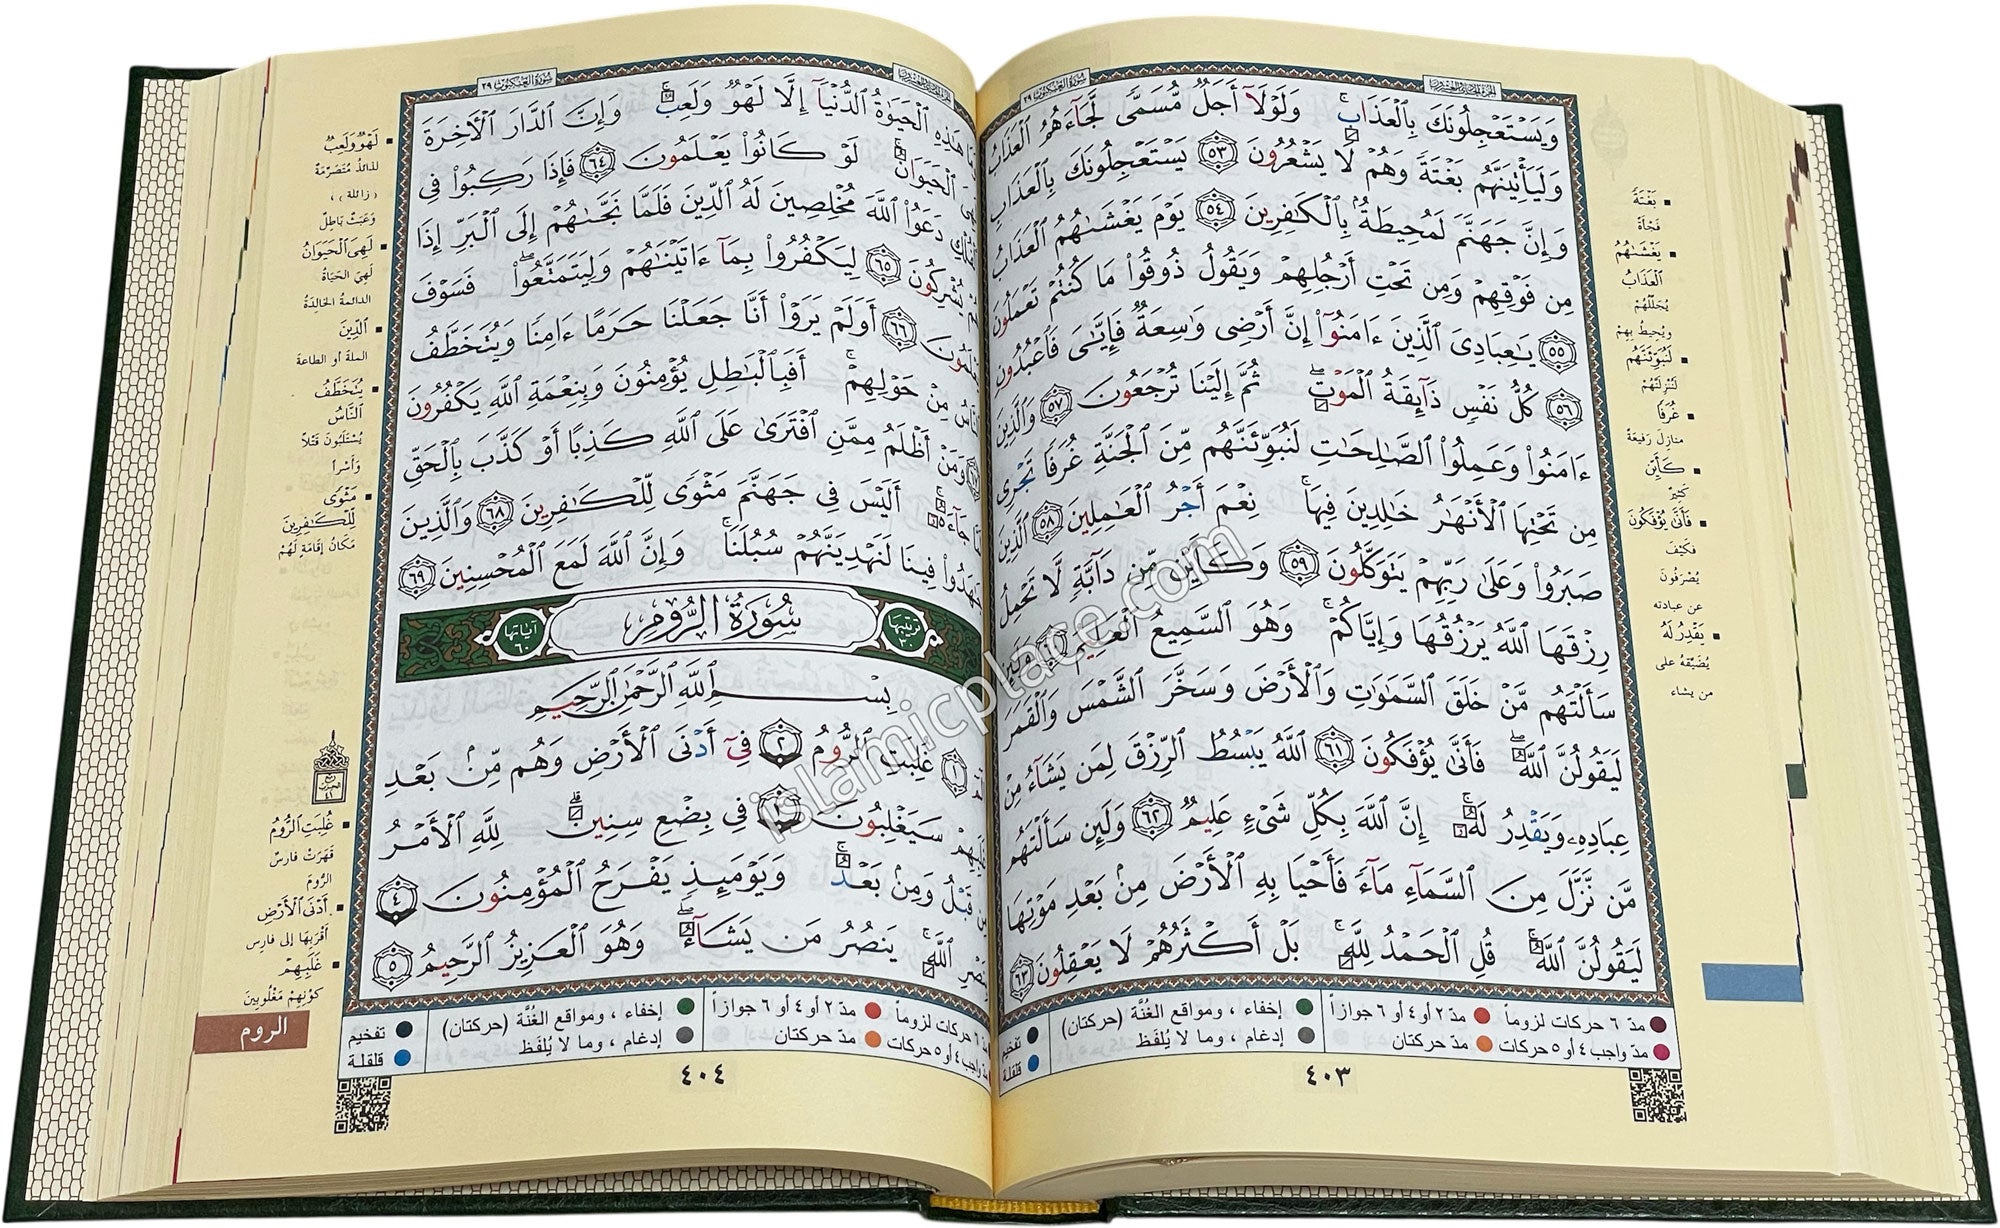 سورة العنكبوت ٢٩
وَيَسْتَعْجِلُونَكَ بِالْعَذَابِ ۚ وَلَوْلَآ أَجَلٌ مُّسَمًّى لَّجَآءَهُمُ الْعَذَابُ
وَلَيَأْتِيَنَّهُم بَغْتَةً وَهُمْ لَا يَشْعُرُونَ ٥٣ يَسْتَعْجِلُونَكَ بِالْعَذَابِ
وَإِنَّ جَهَنَّمَ لَمُحِيطَةٌۢ بِالْكَٰفِرِينَ ٥٤ يَوْمَ يَغْشَىٰهُمُ الْعَذَابُ
مِن فَوْقِهِمْ وَمِن تَحْتِ أَرْجُلِهِمْ وَيَقُولُ ذُوقُوا۟ مَا كُنتُمْ تَعْمَلُونَ
٥٥ يَٰعِبَادِىَ الَّذِينَ ءَامَنُوٓا۟ إِنَّ أَرْضِى وَٰسِعَةٌ فَإِيَّٰىَ فَاعْبُدُونِ
٥٦ كُلُّ نَفْسٍ ذَآئِقَةُ الْمَوْتِ ۖ ثُمَّ إِلَيْنَا تُرْجَعُونَ ٥٧ وَالَّذِينَ
ءَامَنُوا۟ وَعَمِلُوا۟ الصَّٰلِحَٰتِ لَنُبَوِّئَنَّهُم مِّنَ الْجَنَّةِ غُرَفًا تَجْرِى
مِن تَحْتِهَا الْأَنْهَٰرُ خَٰلِدِينَ فِيهَا ۚ نِعْمَ أَجْرُ الْعَٰمِلِينَ ٥٨ الَّذِينَ
صَبَرُوا۟ وَعَلَىٰ رَبِّهِمْ يَتَوَكَّلُونَ ٥٩ وَكَأَيِّن مِّن دَآبَّةٍ لَّا تَحْمِلُ
رِزْقَهَا اللَّهُ يَرْزُقُهَا وَإِيَّاكُمْ ۚ وَهُوَ السَّمِيعُ الْعَلِيمُ ٦٠ وَلَئِن
سَأَلْتَهُم مَّنْ خَلَقَ السَّمَٰوَٰتِ وَالْأَرْضَ وَسَخَّرَ الشَّمْسَ وَالْقَمَرَ
لَيَقُولُنَّ اللَّهُ ۖ فَأَنَّىٰ يُؤْفَكُونَ ٦١ اللَّهُ يَبْسُطُ الرِّزْقَ لِمَن يَشَآءُ مِنْ
عِبَادِهِۦ وَيَقْدِرُ لَهُۥٓ ۚ إِنَّ اللَّهَ بِكُلِّ شَىْءٍ عَلِيمٌ ٦٢ وَلَئِن سَأَلْتَهُم
مَّن نَّزَّلَ مِنَ السَّمَآءِ مَآءً فَأَحْيَا بِهِ الْأَرْضَ مِنۢ بَعْدِ مَوْتِهَا
لَيَقُولُنَّ اللَّهُ ۚ قُلِ الْحَمْدُ لِلَّهِ ۚ بَلْ أَكْثَرُهُمْ لَا يَعْقِلُونَ ٦٣
بَغْتَةً
فَجْأَةً
يَغْشَىٰهُمُ
الْعَذَابُ
يُجَلِّلُهُمْ
ويُحِيطُ بِهِمْ
لَنُبَوِّئَنَّهُم
لَنُنْزِلَنَّهُمْ
غُرَفًا
منازِلَ رَفيعَةً
كَأَيِّن
كَثِيرٌ
فَأَنَّىٰ يُؤْفَكُونَ
فَكَيْفَ
يُصْرَفُونَ
عن عبادته
يَقْدِرُ لَهُ
يُضَيِّقُهُ على
من يشاء
مدّ ٦ حركات لزوماً مدّ ٢ أو ٤ أو ٦ جوازاً إخفاء ، ومواقع الغُنَّة (حركتان) تفخيم
مدّ واجب ٤ أو ٥ حركات مدّ حركتان إدغام ، وما لا يُلفَظ قلقلة
٤٠٣
سورة العنكبوت ٢٩
هَٰذِهِ الْحَيَوٰةُ الدُّنْيَآ إِلَّا لَهْوٌ وَلَعِبٌ ۚ وَإِنَّ الدَّارَ الْءَاخِرَةَ
الْحَيَوَانُ ۚ لَوْ كَانُوا۟ يَعْلَمُونَ ٦٤ فَإِذَا رَكِبُوا۟ فِى
دَعَوُا۟ اللَّهَ مُخْلِصِينَ لَهُ الدِّينَ فَلَمَّا نَجَّىٰهُمْ إِلَى الْبَرِّ إِذَا
يُشْرِكُونَ ٦٥ لِيَكْفُرُوا۟ بِمَآ ءَاتَيْنَٰهُمْ وَلِيَتَمَتَّعُوا۟ ۖ فَسَوْفَ
٦٦ أَوَلَمْ يَرَوْا۟ أَنَّا جَعَلْنَا حَرَمًا ءَامِنًا وَيُتَخَطَّفُ
مِنْ حَوْلِهِمْ ۚ أَفَبِالْبَٰطِلِ يُؤْمِنُونَ وَبِنِعْمَةِ اللَّهِ يَكْفُرُونَ
وَمَنْ أَظْلَمُ مِمَّنِ افْتَرَىٰ عَلَى اللَّهِ كَذِبًا أَوْ كَذَّبَ بِالْحَقِّ
جَآءَهُۥٓ ۚ أَلَيْسَ فِى جَهَنَّمَ مَثْوًى لِّلْكَٰفِرِينَ ٦٨ وَالَّذِينَ
فِينَا لَنَهْدِيَنَّهُمْ سُبُلَنَا ۚ وَإِنَّ اللَّهَ لَمَعَ الْمُحْسِنِينَ ٦٩
ترتيبها ٣٠ سُورَةُ الرُّومِ آياتها ٦٠
بِسْمِ اللَّهِ الرَّحْمَٰنِ الرَّحِيمِ
١ غُلِبَتِ الرُّومُ ٢ فِىٓ أَدْنَى الْأَرْضِ وَهُم مِّنۢ بَعْدِ
سَيَغْلِبُونَ ٣ فِى بِضْعِ سِنِينَ ۗ لِلَّهِ الْأَمْرُ
قَبْلُ وَمِنۢ بَعْدُ ۚ وَيَوْمَئِذٍ يَفْرَحُ الْمُؤْمِنُونَ ٤
اللَّهِ ۚ يَنصُرُ مَن يَشَآءُ ۖ وَهُوَ الْعَزِيزُ الرَّحِيمُ ٥
لَهْوٌ وَلَعِبٌ
لذائذُ مُتَصَرِّمَةٌ
(زائلة) ،
وَعَبَثٌ بَاطِلٌ
لَهِىَ الْحَيَوَانُ
لَهِيَ الحَيَاةُ
الدائمةُ الخالِدَةُ
الدِّينَ
الملة أو الطاعة
يُتَخَطَّفُ
النَّاسُ
يُسْتَلَبُونَ قَتْلاً
وَأَسْراً
مَثْوًى
لِّلْكَٰفِرِينَ
مَكَانُ إقَامَةٍ لَهُمْ
غُلِبَتِ الرُّومُ
قَهَرَتْ فارسُ
الرُّومَ
أَدْنَى الْأَرْضِ
أَقْرَبِهَا إلى فارِس
غَلَبِهِمْ
كَوْنِهِمْ مَغْلُوبِينَ
الروم
مدّ ٢ أو ٤ أو ٦ جوازاً إخفاء ، ومواقع الغُنَّة (حركتان) تفخيم
مدّ حركتان إدغام ، وما لا يُلفَظ قلقلة
٤٠٤
islamicplace.com